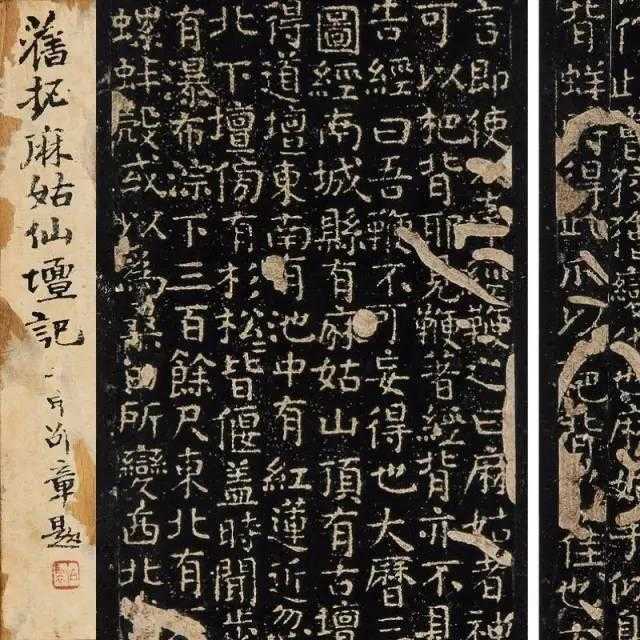 背蛘時得此爪以杷背乃佳也
言即使牽經鞭之曰麻姑者神
可以杷背耶見鞭著經背亦不見
告經曰吾鞭不可妄得也大曆三
圖經南城縣有麻姑山頂有古壇
得道壇東南有池中有紅蓮近忽
北下壇傍有杉松皆偃蓋時聞步
有瀑布淙下三百餘尺東北有
螺蚌殼或以為桑田所變西北
舊拓麻姑仙壇記
章題